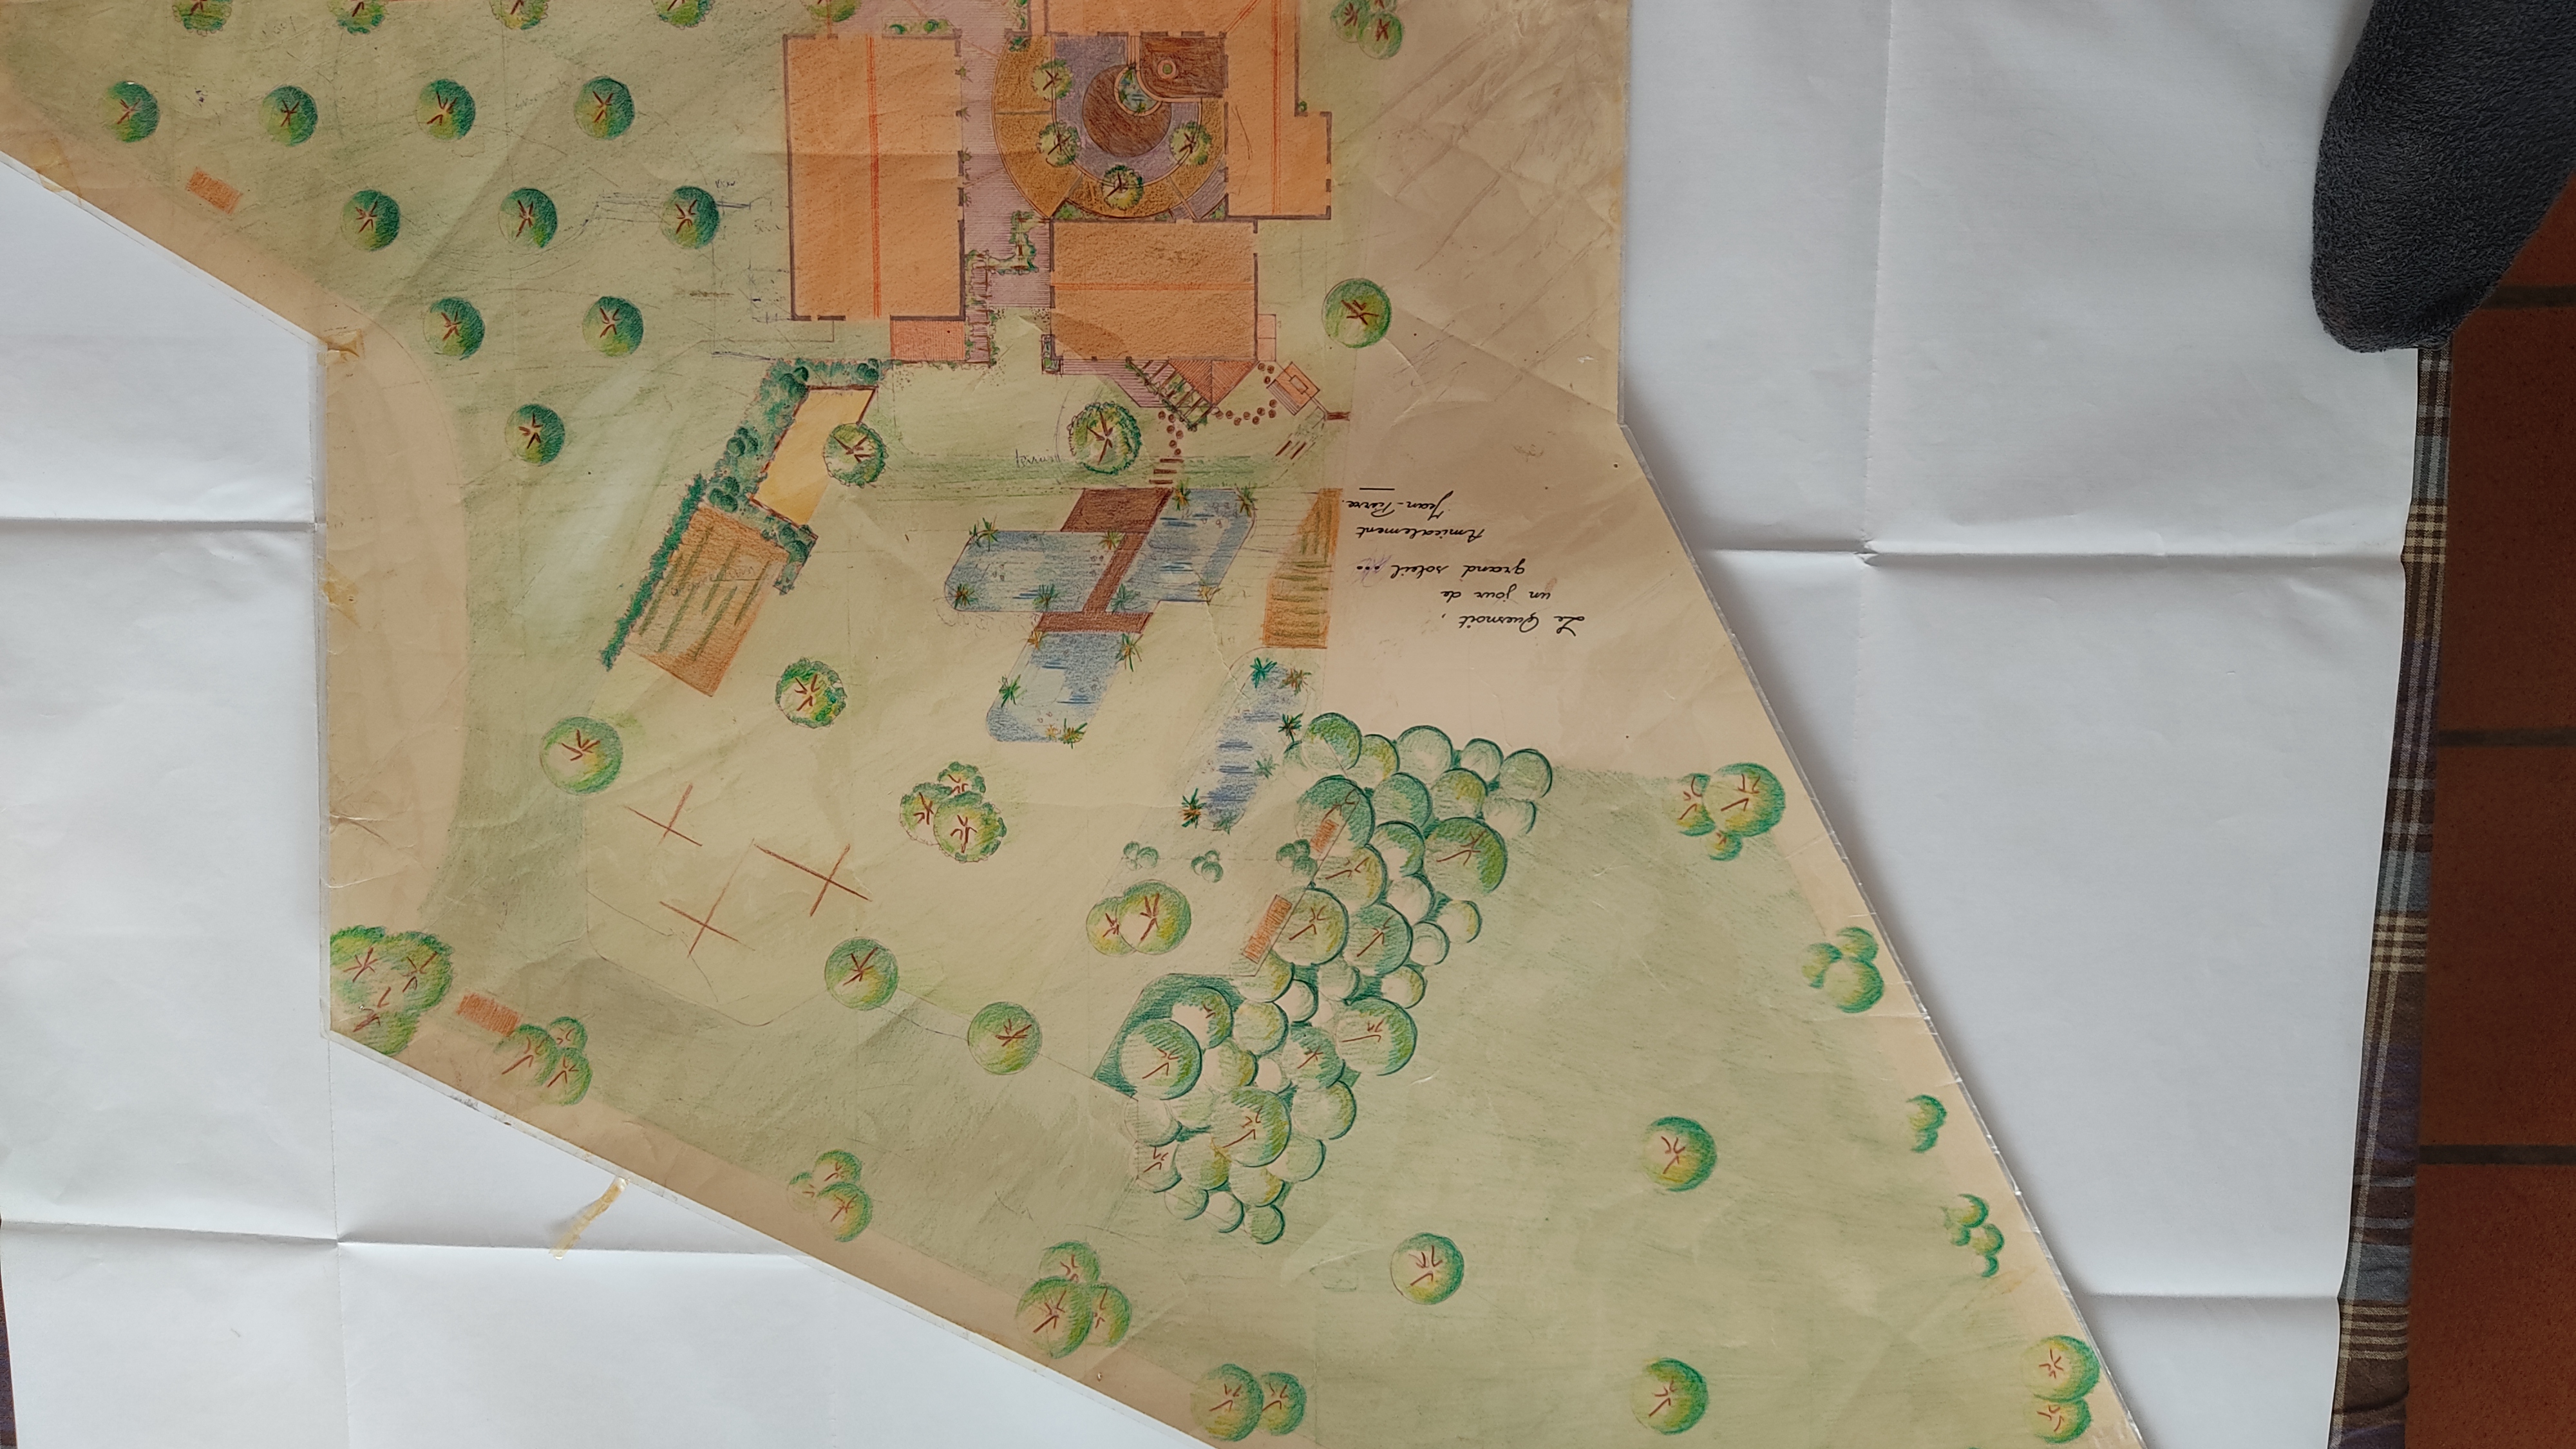 Le Quesnoit,
un jour de
grand soleil ...
Amicalement
Jean-Pierre.